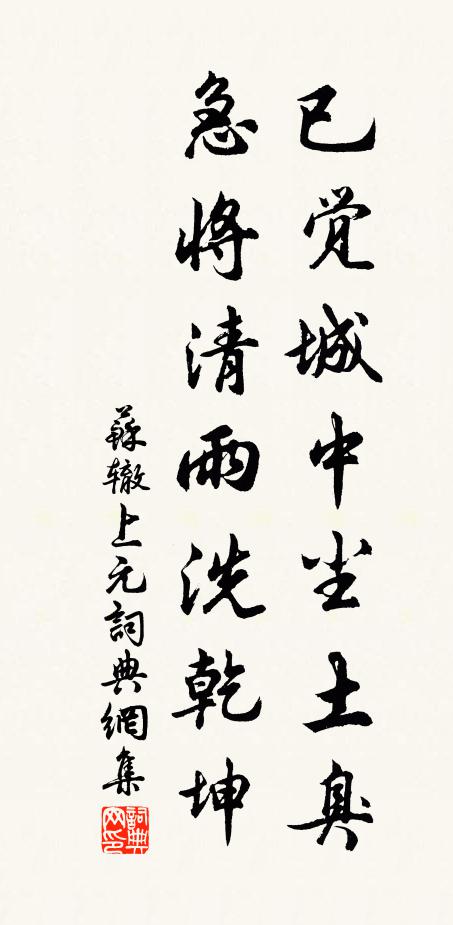 已觉城中尘土臭
急將清雨洗乾坤
蘇辙上元詞典網集
詞典网印